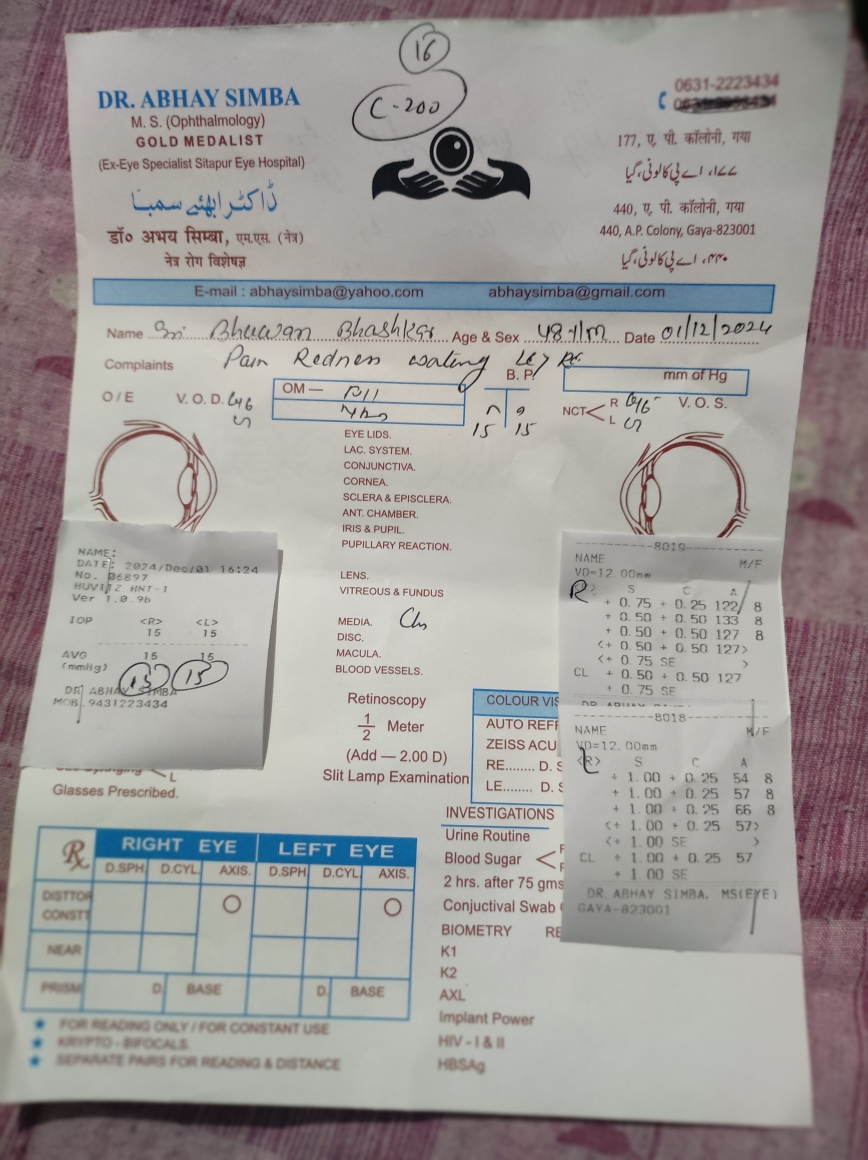 16
C-200
DR. ABHAY SIMBA
M. S. (Ophthalmology)
GOLD MEDALIST
(Ex-Eye Specialist Sitapur Eye Hospital)
ڈاکٹر ابھئے سمبا
डॉ० अभय सिम्बा, एम.एस. (नेत्र)
नेत्र रोग विशेषज्ञ
0631-2223434
177, ए. पी. कॉलोनी, गया
۱۷۷، اے پی کالونی، گیا
440, ए. पी. कॉलोनी, गया
440, A.P. Colony, Gaya-823001
۴۴۰، اے پی کالونی، گیا
E-mail : abhaysimba@yahoo.com abhaysimba@gmail.com
Name Sri Bhuwan Bhashkar Age & Sex 48 y/m Date 01/12/2024
Complaints Pain Redness watering LE > RE
B. P. mm of Hg
O/E V. O. D. 6/6 OM — NCT < R 6/6 L V. O. S.
15 15
EYE LIDS.
LAC. SYSTEM.
CONJUNCTIVA.
CORNEA.
SCLERA & EPISCLERA.
ANT. CHAMBER.
IRIS & PUPIL.
PUPILLARY REACTION.
LENS.
VITREOUS & FUNDUS
MEDIA.
DISC.
MACULA.
BLOOD VESSELS.
NAME:
DATE: 2024/Dec/01 16:24
No. 06897
HUVITZ HNT-1
Ver 1.0.9b
IOP <R> <L>
15 15
AVG 15 15
(mmHg) 15 15
DR ABHAY SIMBA
MOB. 9431223434
8019
NAME M/F
VD=12.00mm
R S C A
+ 0.75 + 0.25 122 8
+ 0.50 + 0.50 133 8
+ 0.50 + 0.50 127 8
<+ 0.50 + 0.50 127>
<+ 0.75 SE >
CL + 0.50 + 0.50 127
+ 0.75 SE
8018
NAME M/F
VD=12.00mm
<R> S C A
L
+ 1.00 + 0.25 54 8
+ 1.00 + 0.25 57 8
+ 1.00 + 0.25 66 8
<+ 1.00 + 0.25 57>
<+ 1.00 SE >
CL + 1.00 + 0.25 57
+ 1.00 SE
DR. ABHAY SIMBA. MS(EYE)
GAYA-823001
Retinoscopy
1/2 Meter
(Add — 2.00 D)
Slit Lamp Examination
COLOUR VIS
AUTO REF
ZEISS ACU
RE........ D. S
LE........ D. S
L
Glasses Prescribed.
Rx RIGHT EYE LEFT EYE
D.SPH. D.CYL. AXIS. D.SPH. D.CYL. AXIS.
DISTTOR
CONSTT
NEAR
PRISM D. BASE D. BASE
★ FOR READING ONLY / FOR CONSTANT USE
★ KRYPTO - BIFOCALS.
★ SEPARATE PAIRS FOR READING & DISTANCE
INVESTIGATIONS
Urine Routine
Blood Sugar <
2 hrs. after 75 gms
Conjuctival Swab
BIOMETRY RE
K1
K2
AXL
Implant Power
HIV - I & II
HBSAg